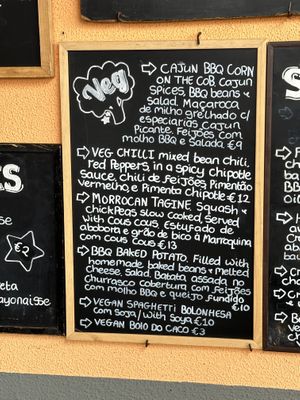 Veg
→ CAJUN BBQ CORN
ON THE COB CAJUN
SPICES, BBQ beans &
Salad. Maçaroca
de milho grelhado c/
especiarias Cajun
Picante, Feijões com
molho BBQ e Salada. €9
→ VEG CHILLI mixed bean chili,
red Peppers, in a spicy chipotle
Sauce, chili de Feijões, Pimentão
Vermelho, e Pimenta chipotle €12
→ MORROCAN TAGINE Squash &
ChickPeas slow cooked, served
with Cous Cous, Estufado de
abobora e grão de bico à Marraquina
com Cous Cous €13
→ BBQ BAKED POTATO. Filled with
homemade baked beans & melted
Cheese, Salad. Batata assada no
churrasco cobertura com feijões
com molho BBQ e queijo fundido
€10
→ VEGAN SPAGHETTI BOLONHESA
com Soja/with Soya €10
→ VEGAN BOLO DO CACO €3
KS
€2
eta
ayonaisse
S